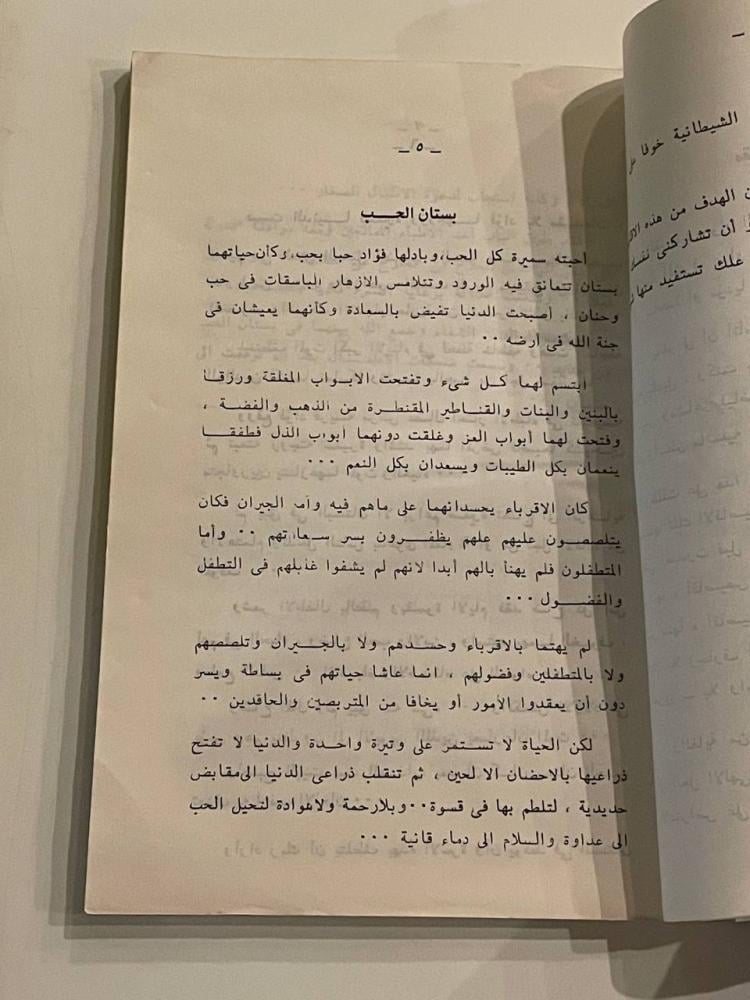 ـ ٥ ـ
بستان الحـــب
احبته سميرة كل الحب، وبادلها فؤاد حبا بحب، وكأن حياتهما
بستان تتعانق فيه الورود وتتلامس الازهار الباسقات فى حب
وحنان ، أصبحت الدنيا تفيض بالسعادة وكأنهما يعيشان فى
جنة الله فى أرضه ٠٠
ابتسم لهما كـل شىء وتفتحت الابـواب المغلقة ورزقـا
بالبنين والبنات والقنـاطير المقنطـرة من الذهب والفضـة ،
وفتحت لهما أبواب العـز وغلقت دونهما أبواب الذل فطفقـــا
ينعمان بكل الطيبات ويسعدان بكل النعم ٠٠٠
كان الاقرباء يحسدانهما على ماهم فيه وأمـا الجيران فكان
يتلصصـون عليهم علهم يظفـــرون بسر سعـادتهم ٠٠ وأمـا
المتطفلون فلم يهنأ بالهم أبدا لانهم لم يشفوا غليلهم فى التطفل
والفضـــول ٠٠٠
لم يهتما بالاقرباء وحسـدهم ولا بالجيـران وتلصصهم
ولا بالمتطفلين وفضولهم ، انما عاشا حياتهم فى بساطة ويسـر
دون أن يعقدوا الأمور أو يخافا من المتربصين والحاقدين ٠٠
لكن الحياة لا تستمر على وتيرة واحـدة والدنيا لا تفتح
ذراعيها بالاحضان الا لحين ، ثم تنقلب ذراعى الدنيا الى مقابض
حديدية ، لتلطم بها فى قسوة ٠٠ وبلا رحمة ولا هوادة لتحيل الحب
الى عداوة والسلام الى دماء قانية ٠٠٠
الشيطانية خوفا
الهدف من هذه
أن تشاركنى
علك تستفيد منها